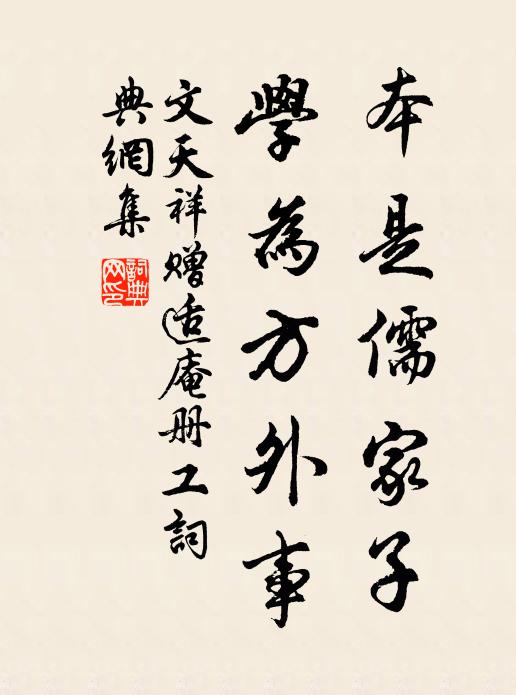 本是儒家子
學為方外事
文天祥贈适庵册工詞
典網集
詞典
网印